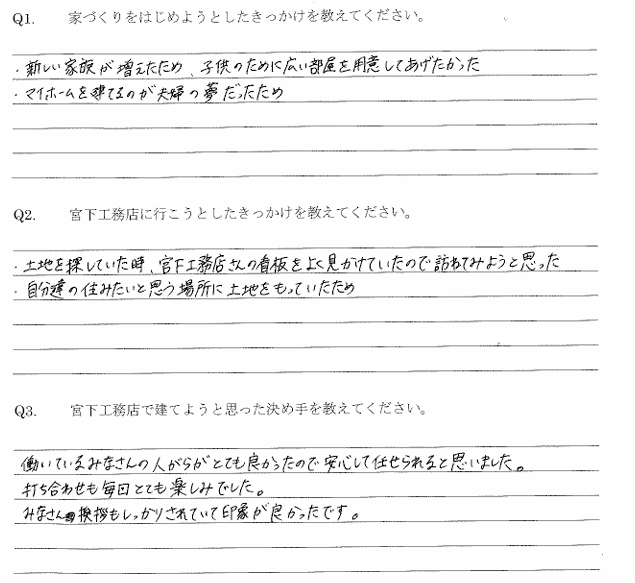 Q1. 家づくりをはじめようとしたきっかけを教えてください。
・新しい家族が増えたため、子供のために広い部屋を用意してあげたかった
・マイホームを建てるのが夫婦の夢だったため
Q2. 宮下工務店に行こうとしたきっかけを教えてください。
・土地を探していた時、宮下工務店さんの看板をよく見かけていたので訪ねてみようと思った
・自分達の住みたいと思う場所に土地をもっていたため
Q3. 宮下工務店で建てようと思った決め手を教えてください。
働いているみなさんの人がらがとても良かったので安心して任せられると思いました。
打ち合わせも毎回とても楽しみでした。
みなさん挨拶もしっかりされていて印象が良かったです。